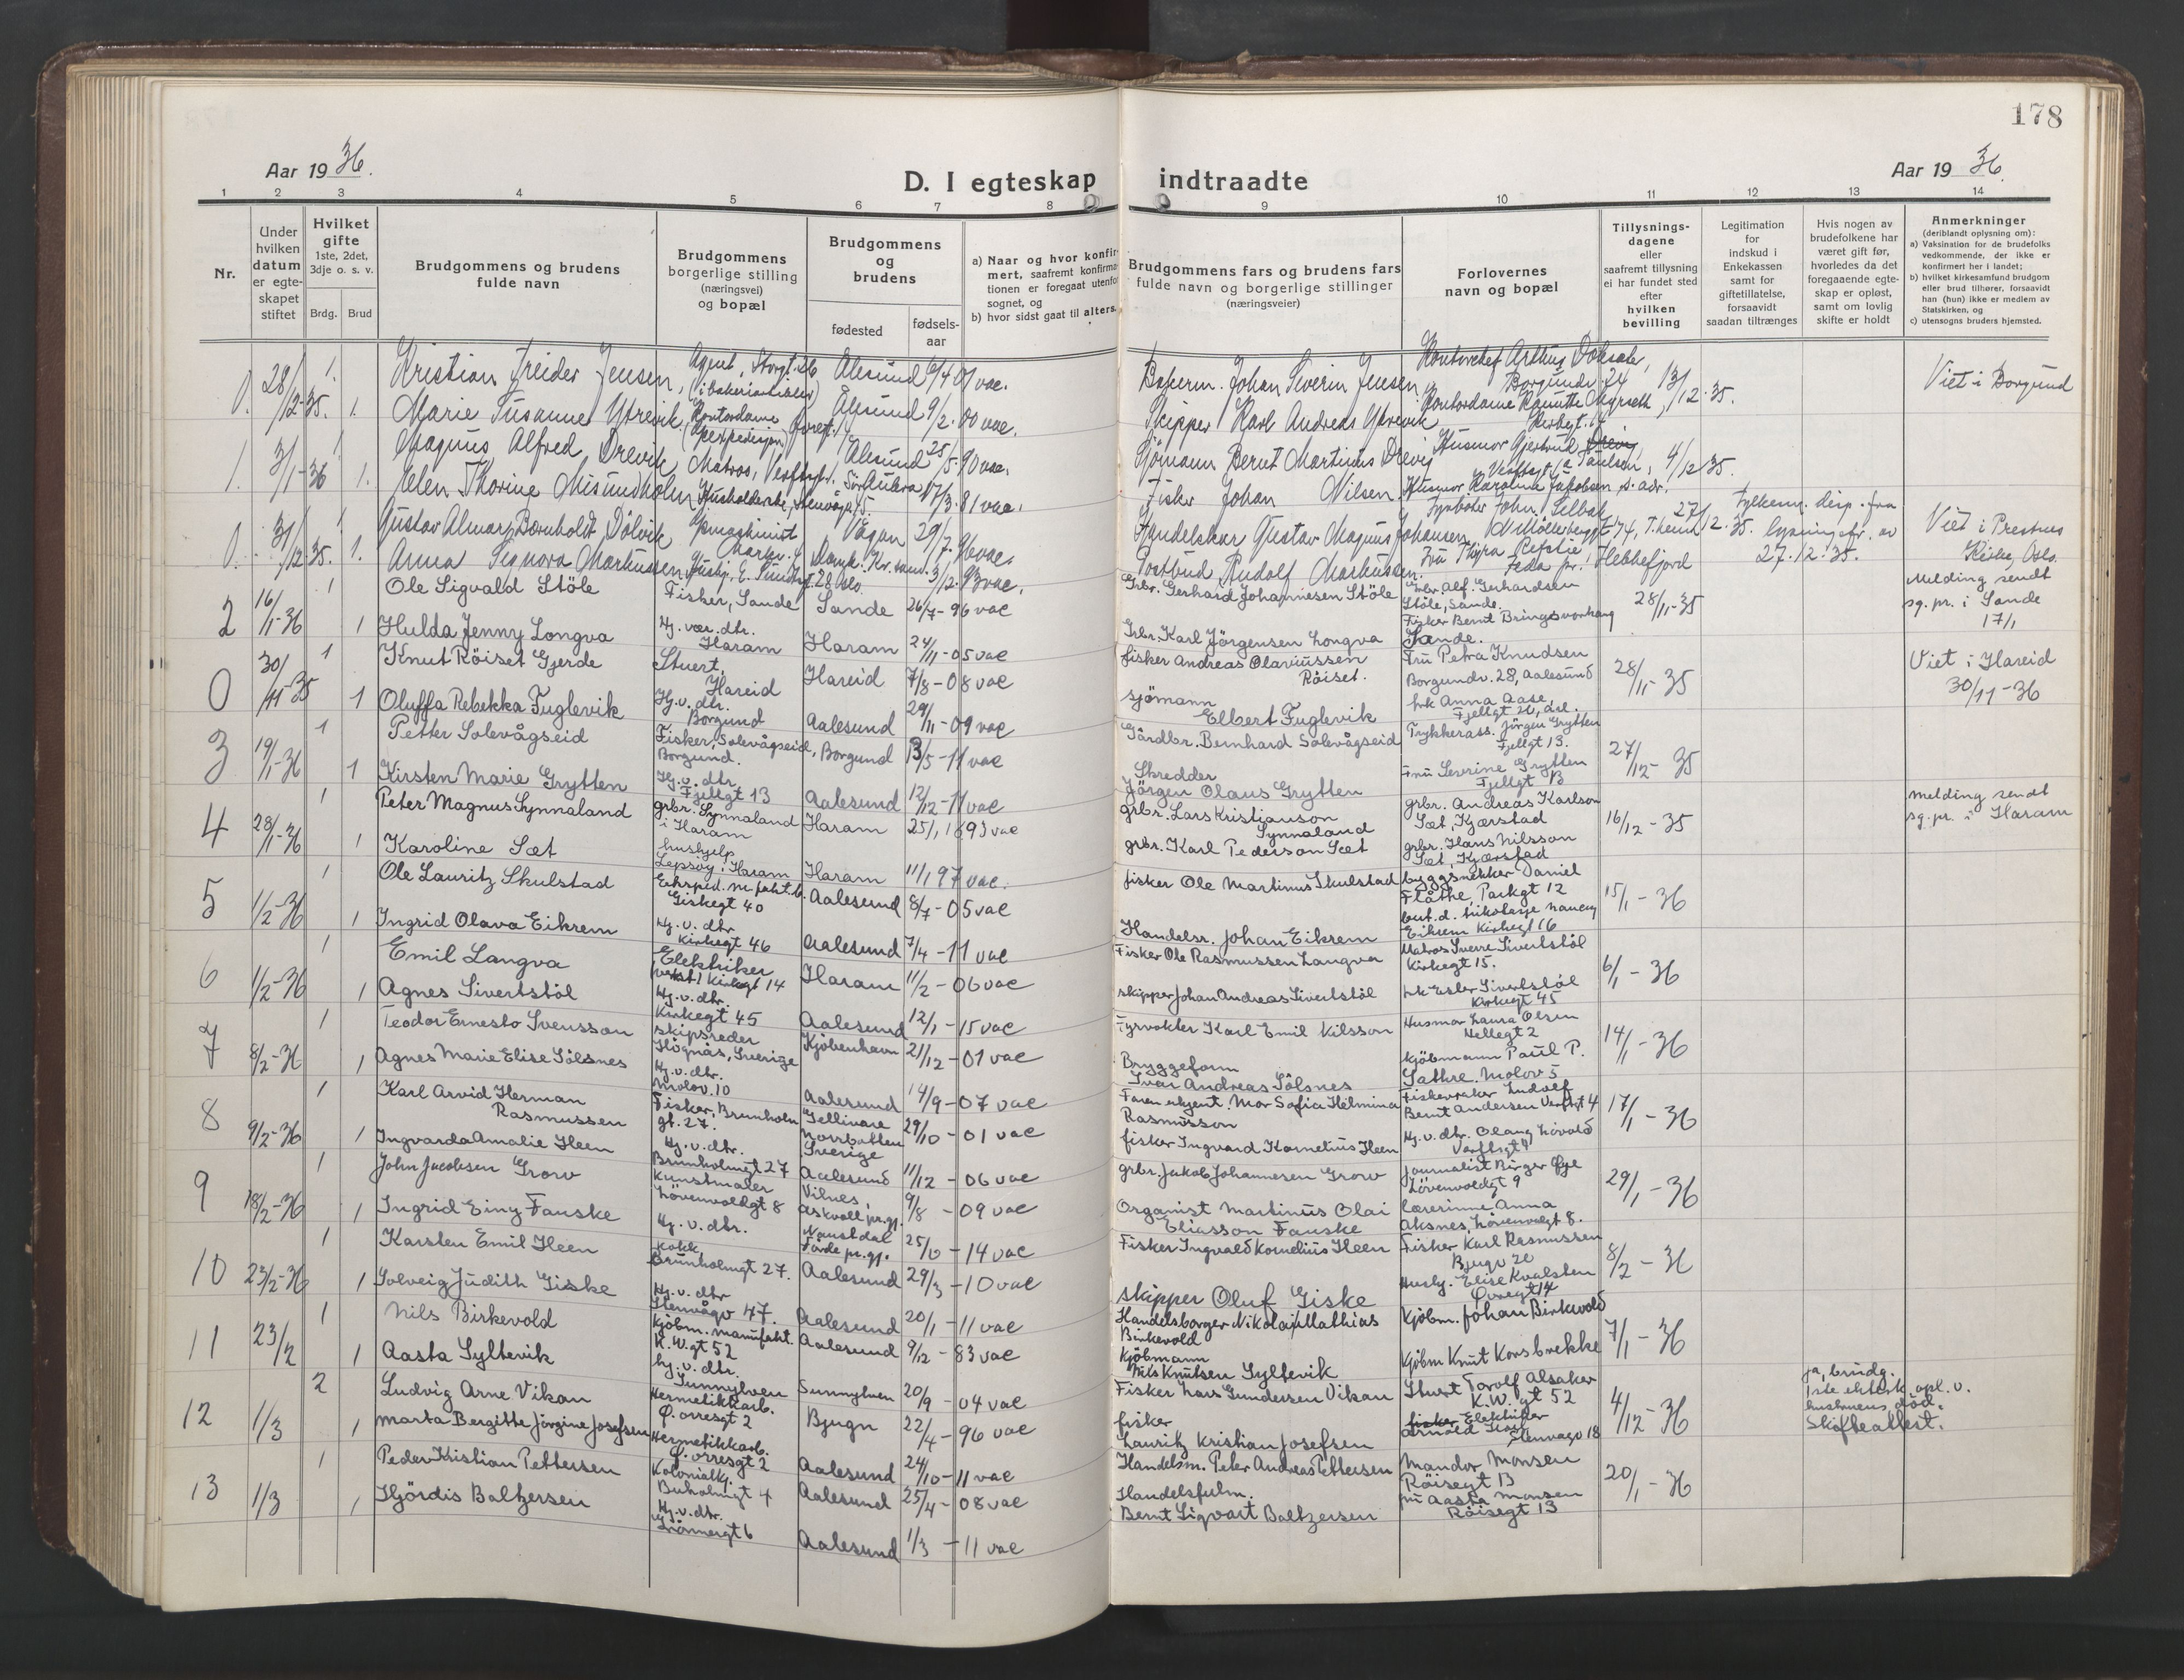 178
Aar 1936.
Aar 1936.
D. I egteskap indtraadte
1 2 3 4 5 6 7 8 9 10 11 12 13 14
Nr.
Under hvilken datum er egteskapet stiftet
Hvilket gifte 1ste, 2det, 3dje o. s. v.
Brdg. Brud
Brudgommens og brudens fulde navn
Brudgommens borgerlige stilling (næringsvei) og bopæl
Brudgommens og brudens
fødested
fødselsaar
a) Naar og hvor konfirmert, saafremt konfirmationen er foregaat utenfor sognet, og
b) hvor sidst gaat til alters.
Brudgommens fars og brudens fars fulde navn og borgerlige stillinger (næringsveier)
Forlovernes navn og bopæl
Tillysningsdagene eller saafremt tillysning ei har fundet sted efter hvilken bevilling
Legitimation for indskud i Enkekassen samt for giftetillatelse, forsaavidt saadan tiltrænges
Hvis nogen av brudefolkene har været gift før, hvorledes da det foregaaende egteskap er opløst, samt om lovlig skifte er holdt
Anmerkninger (deriblandt oplysning om):
a) Vaksination for de brudefolks vedkommende, der ikke er konfirmert her i landet;
b) hvilket kirkesamfund brudgom eller brud tilhører, forsaavidt han (hun) ikke er medlem av Statskirken, og
c) utensogns bruders hjemsted.
0. 28/12-35. 1. Kristian Freider Jensen, Agent, Storgt. Ålesund 01 vac. Johan Severin Jensen Kontorchef Arthur 13/12-35. Viet i Borgund
1. Marie Susanne Ytrevik Kontordame Ålesund 9/2. 00 vac. Skipper Karl Andreas Ytrevik Kontordame Myrseth Kirkegt. 14
1. 3/1-36 1. Magnus Alfred Drevik, Matros, Ålesund 25/5. 90 vac. Sjömann Bernt Martinus Drevig Husmor Gjertrud Paulsen, 4/12 35.
1. Helen Thorine Misundholm Husholderske, 17/3. 81 vac. Fisker Johan Nilsen. Husmor Karoline Jakobsen, s. adr.
0. 31/12 35. 1. Gustav Almar Bornholdt Dölvik Vågan 29/7. 96 vac. Handelskar Gustav Magnus Johansen John Selbak 27/12. 35. fylkem. disp. fra lysningsfr. av 27.12.35. Viet i Prestnes Kirke, Oslo.
1. Anna Signora Markussen 3/2. 93 vac. Postbud Rudolf Markussen. Fru Thyra Refstie, Flekkefjord
2 16/1-36 1 Ole Sigvald Stöle Fisker, Sande Sande 26/7-96 vac Grbr. Gerhard Johannesen Stöle Grbr. Alf. Gerhardsen Stöle, Sande. 28/11-35 Melding sendt sg. pr. i Sande 17/1
1 Hulda Jenny Longva Hj. vær. dtr. Haram Haram 24/11-05 vac Grbr. Karl Jörgensen Longva Fisker Bernt Bringsvorhaug Sande.
0 30/11-35 1 Knut Röiset Gjerde Stuert, Hareid Hareid 7/8-08 vac fisker Andreas Olaviussen Röiset. Fru Petra Knudsen Borgundv. 28, Aalesund 28/11-35 Viet i Hareid 30/11-36
1 Oluffa Rebekka Fuglevik Hj. v. dtr. Borgund Aalesund 29/11-09 vac sjömann Elbert Fuglevik frk Anna Aase Fjellgt 26, dsl.
3 19/1-36 1 Petter Solevågseid Fisker, Solevågseid, Borgund. Borgund 13/5-11 vac Gårdbr. Bernhard Solevågseid Trykkerass. Jörgen Grytten Fjellgt 13. 27/12-35
1 Kirsten Marie Grytten Hj. v. dtr. Fjellgt 13 Aalesund 12/12-11 vac Skredder Jörgen Olaus Grytten Fru Severine Grytten Fjellgt 13
4 28/1-36 1 Peter Magnus Synnaland grbr. Synnaland i Haram Haram 25/1 1893 vac grbr. Lars Kristianson Synnaland grbr. Andreas Karlson Sæt, Kjærstad 16/12-35 Melding sendt sg. pr. i Haram
1 Karoline Sæt hushjelp Lepsöy, Haram Haram 11/1 97 vac. grbr. Karl Pederson Sæt grbr. Hans Nilsson Sæt, Kjærstad
5 1/2-36 1 Ole Lauritz Skulstad Giskegt 40 Aalesund 8/7-05 vac fisker Ole Martinus Skulstad byggsnekker Daniel Flåthe, Parkgt 12 15/1-36
1 Ingrid Olava Eikrem Hj. v. dtr Kirkegt 46 Aalesund 7/4-11 vac Handelsr. Johan Eikrem Eikrem Kirkegt 16
6 1/2-36 1 Emil Langva Elektriker Kirkegt 14 Haram 11/2-06 vac Fisker Ole Rasmussen Langva Matros Sverre Sivertstöl Kirkegt 15. 6/1-36
1 Agnes Sivertstöl Hj. v. dtr. Kirkegt 45 Aalesund 12/1-15 vac skipper Johan Andreas Sivertstöl frk Ester Sivertstöl Kirkegt 45
7 8/2-36 1 Teodor Ernesto Svensson skipsreder Höganäs, Sverige Kjöbenhavn 21/12-01 vac Fyrvokter Karl Emil Nilsson Husmor Laura Olsen Hellegt 2 14/1-36
1 Agnes Marie Elise Sölsnes Hj. v. dtr. Molov. 10 Aalesund 14/9-07 vac Bryggeform Ivar Andreas Sölsnes Kjöbmann Paul P. Sathre. Molov 5
8 9/2-36 1 Karl Arvid Herman Rasmussen Fisker, Brunholmgt. 27. Gellivare Norrbotten Sverige 29/10-01 vac Faren ukjent. Mor Sofia Helmina Rasmusson Fiskevraker Ludolf Bernt Andersen 17/1-36
1 Ingvarda Amalie Heen Hj. v. dtr. Brunholmgt 27 Aalesund 11/12-06 vac fisker Ingvard Kornelius Heen Hj. v. dtr. Olaug Lövold
9 18/2-36 1 John Jacobsen Grov Kunstmaler Lövenvoldgt 8 Vilnes, Askvoll pr.gj. 9/8-09 vac grbr. Jakob Johannesen Grov journalist Birger Öye Lövenvoldgt 9 29/1-36
1 Ingrid Einy Fauske Hj. v. dtr. Naustdal Förde pr.gj. 25/10-14 vac Organist Martinus Olai Eliasson Fauske lærerinne Anna Aksnes, Lövenvoldgt 8.
10 23/2-36 1 Karsten Emil Heen kokk, Brunholmgt 27. Aalesund 29/3-10 vac Fisker Ingvald Kornelius Heen Fisker Karl Rasmussen 8/2-36
1 Solveig Judith Giske Hj. v. dtr Stenvågv 47. Aalesund 20/1-11 vac skipper Oluf Giske Elise Kvalsten
11 23/2 1 Nils Birkevold Kjöbm. manufakt. K.W.gt 52 Aalesund 9/12-83 vac Handelsborger Nikolai Mathias Birkevold Kjöbm. Johan Birkevold 7/1-36
1 Aasta Syltevik hj. v. dtr. Sunnylven Sunnylven 20/9-04 vac Kjöbmann Nils Knutsen Syltevik Kjöbm Knut Korsbrekke
12 1/3 2 Ludvig Arne Vikan Hermetikkarb. Ö. orresgt 2 Bjugn 22/4-96 vac Fisker Lars Gundersen Vikan Stuert Torolf Alsaker K.W.gt 52 4/12-36 ja, brudg. 1ste ektesk. opl. v. hustruens död. Skifteattest.
1 Marta Bergitte Jörgine Josefsen Hermetikkarb. Ö. orresgt 2 Aalesund 24/10-11 vac fisker Lauritz Kristian Josefsen fisker Elektriker Arnold Stenvågv 18
13 1/3 1 Peder Kristian Pettersen Kolonialkj. Buholmgt 4 Aalesund 25/4-08 vac Handelsm. Peter Andreas Pettersen Mandor Monsen Röisegt 13 20/1-36
1 Hjördis Baltzersen Hj. v. dtr. Aalesund 1/3-11 vac Handelsfulm. Bernt Sigvart Baltzersen fru Aasta Monsen Röisegt 13